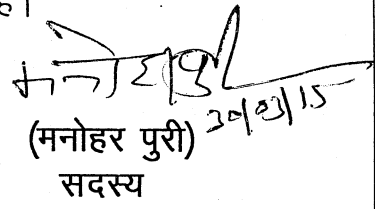 है।
मनोहर पुरी
30/03/15
(मनोहर पुरी)
सदस्य